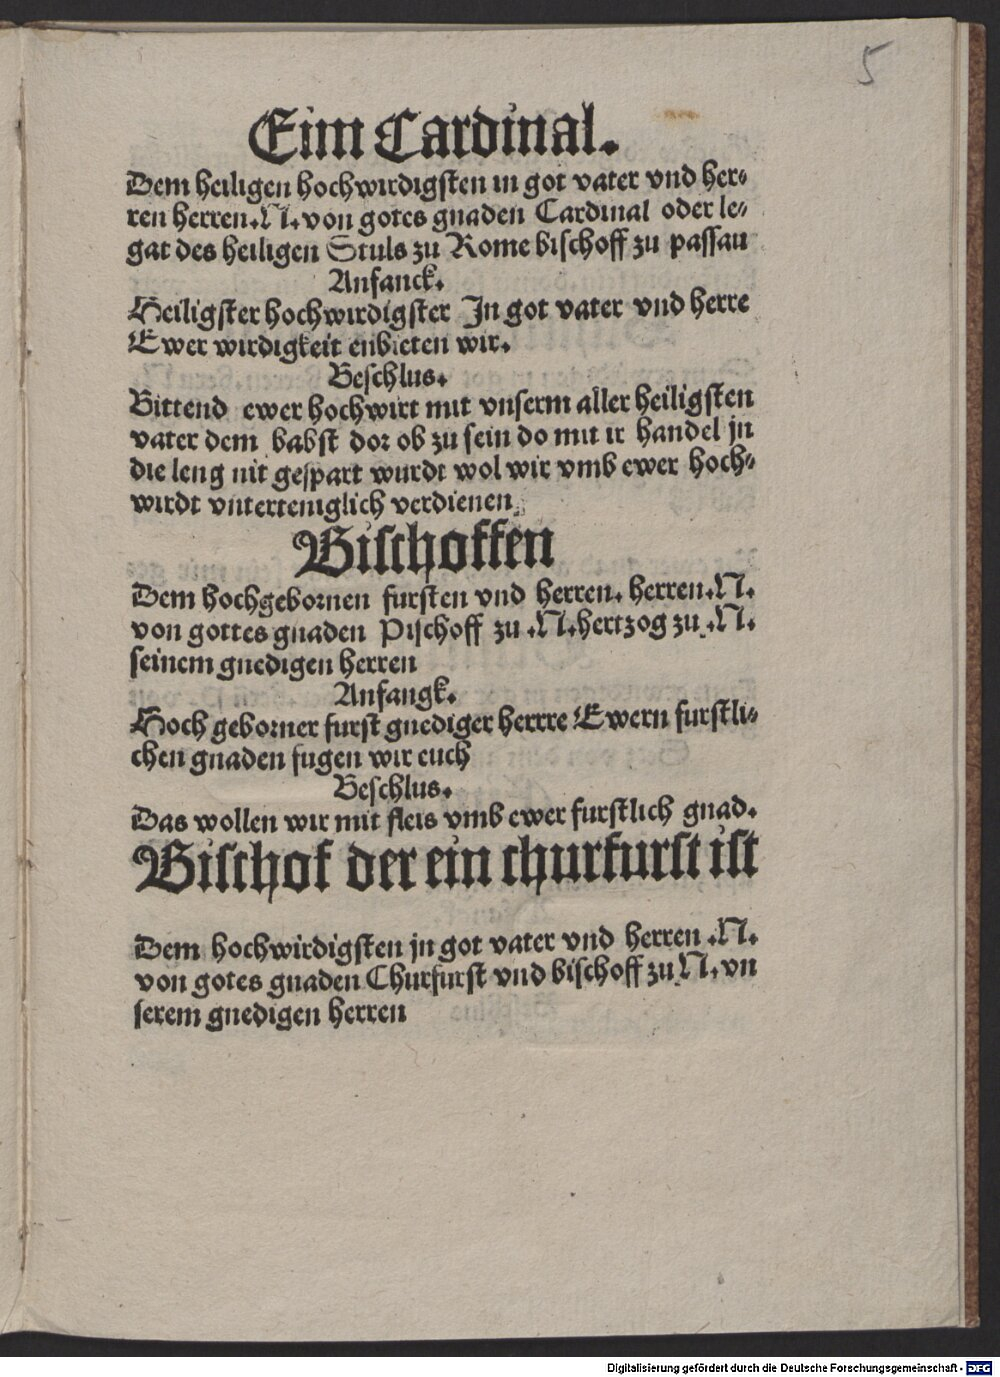 5
Eim Cardinal.
Dem heiligen hochwirdigsten in got vater vnd her⸗
ren herren.N.von gotes gnaden Cardinal oder le⸗
gat des heiligen Stuls zu Rome bischoff zu passau
Anfanck.
Heiligster hochwirdigster In got vater vnd herre
Ewer wirdigkeit enbieten wir.
Beschlus.
Bittend ewer hochwirt mit vnserm aller heiligsten
vater dem babst dor ob zu sein do mit ir handel in
die leng nit gespart wurdt wol wir vmb ewer hoch⸗
wirdt vnterteniglich verdienen.
Bischoffen
Dem hochgebornen fursten vnd herren. herren.N.
von gottes gnaden Pischoff zu .N.hertzog zu .N.
seinem gnedigen herren
Anfangk.
Hoch geborner furst gnediger herrre Ewern furstli⸗
chen gnaden fugen wir euch
Beschlus.
Das wollen wir mit fleis vmb ewer furstlich gnad.
Bischof der ein churfurst ist
Dem hochwirdigsten jn got vater vnd herren .N.
von gotes gnaden Churfurst vnd bischoff zu N. vn
serem gnedigen herren
Digitalisierung gefördert durch die Deutsche Forschungsgemeinschaft - DFG